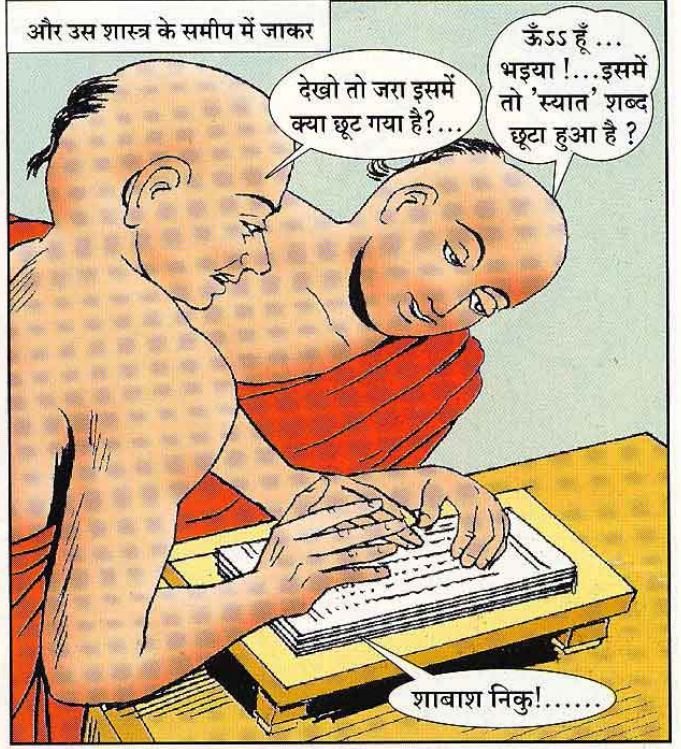 और उस शास्त्र के समीप में जाकर
देखो तो जरा इसमें
क्या छूट गया है?...
ऊँऽऽ हूँ ...
भइया !...इसमें
तो 'स्यात' शब्द
छूटा हुआ है ?
शाबाश निकु!......